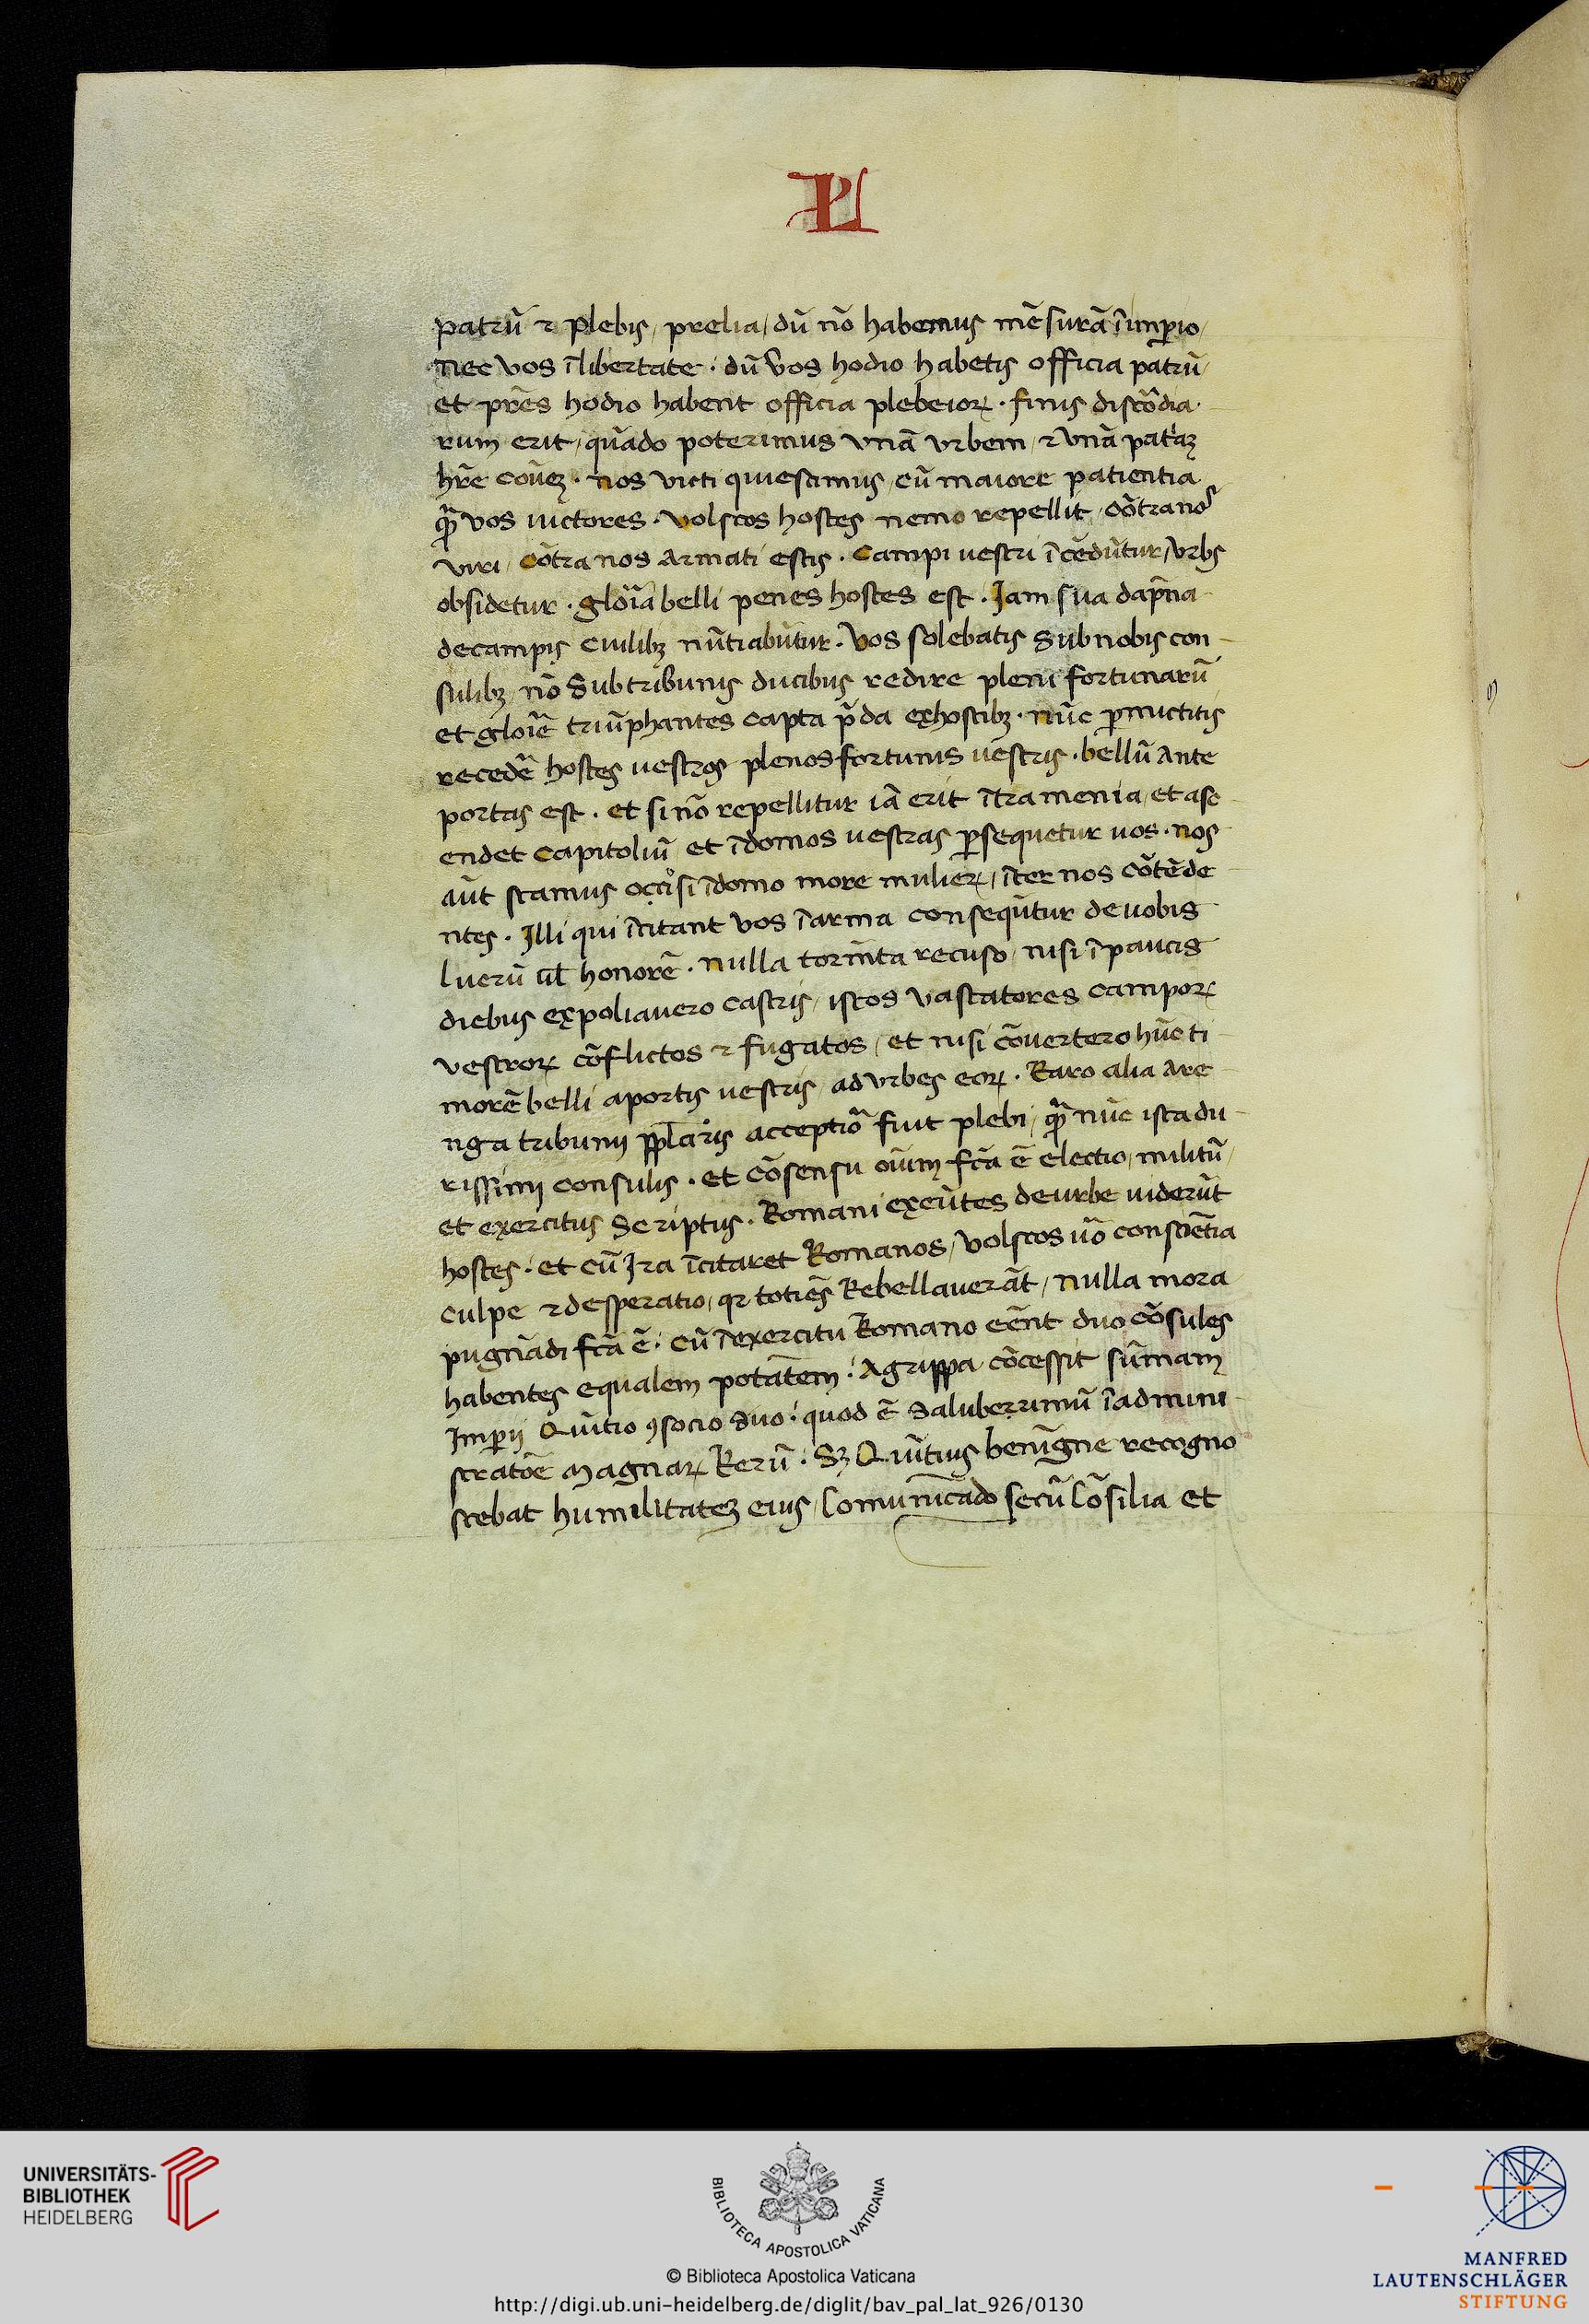 patrū ⁊ plebis / prelia / dū nō habemus mēsurā ī imꝑio /
nec vos ī libertate · dū vos hodio habetis officia patrū /
et prēs hodio habent officia plebeioꝝ · finis discōdia
rum erit / quādo poterimus vnā vrbem / ⁊ vnā
hr̄e · nos victi quiescimus / cū maiore patientia
qꝫ̄ vos uictores · volscos hostes nemo repellit / cōtra nos
viri / cōtra nos armati estis · Campi uestri īcēdūtur / vrbs
obsidetur · gloīa belli penes hostes est · Jam sua dāpna
de campis ciuilibꝫ nūtiabūtur · Vos solebatis sub nobis con
sulibꝫ / nō sub tribunis ducibus redire pleni fortunarū
et gloīē triūphantes capta p̄da ex hostibꝫ · nūc ꝑmictitis
recedē hostes uestros plenos fortunis uestris · bellū ante
portas est · et si nō repellitur iā erit ītra menia / et asc
endet Capitoliū et ī domos uestras ꝑsequetur uos · nos
aūt stamus ī domo more mulieꝝ / īter nos cōtēde
ntes · Illi qui īcitant vos ī arma consequūtur de uobis
lucrū ul̄ honorē · nulla tormīta recuso / nisi ī paucis
diebus expoliauero castris / istos vastatores campoꝝ
vestroꝝ cōflictos ⁊ fugatos / et nisi cōuertero hūc ti
morē belli a portis uestris / ad vrbes eoꝝ · Raro alia are
nga tribunij ppl̄aris acceptiō fuit plebi / qꝫ̄ nūc ista du
rissimi consulis · et cōsensu oīum fc̄a ē electio / militū /
et exercitus scriptus · Romani exeūtes de urbe uiderūt
hostes · et cū Jra īcitaret Romanos / volscos uō consciētia
culpe ⁊ desperatio / qꝛ totiēs Rebellauerāt / nulla mora
pugnādi fc̄a ē · cū ī exercitu Romano eēnt duo cōsules
habentes equalem potātem · Agrippa cōcessit sūmam
Imꝑij Quītio ꝯsocio suo · quod ē saluberrimū ī admini
stratōe magnaꝝ Rerū · Sꝫ Quītius benigne recogno
scebat humilitateꝫ eius / Comunicādo secū Cōsilia et
UNIVERSITÄTS-
BIBLIOTHEK
HEIDELBERG
BIBLIOTECA APOSTOLICA VATICANA
© Biblioteca Apostolica Vaticana
http://digi.ub.uni-heidelberg.de/diglit/bav_pal_lat_926/0130
MANFRED
LAUTENSCHLÄGER
STIFTUNG